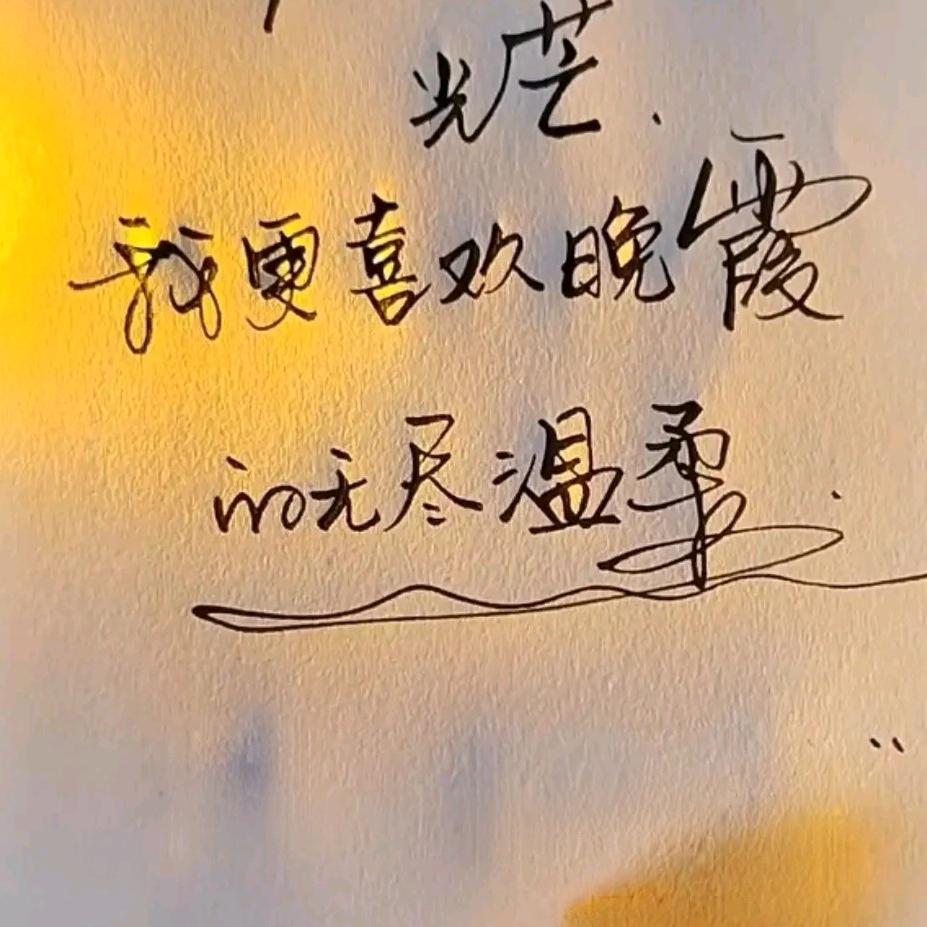 光芒.
我更喜欢晚霞
的无尽温柔.